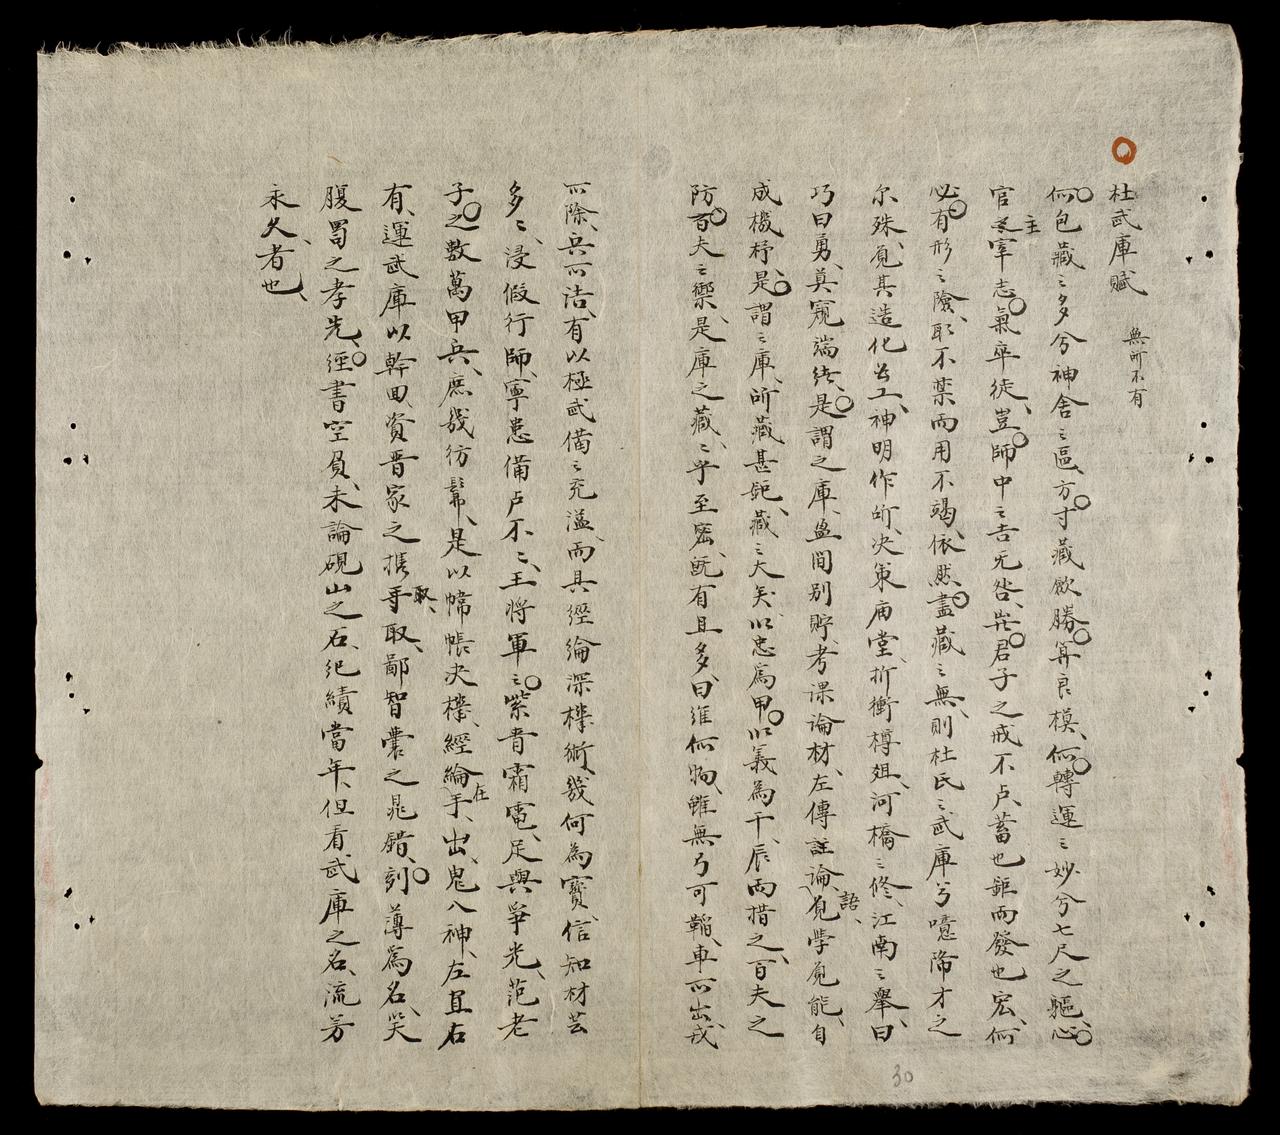 杜武庫賦 無所不有
何包藏之多兮神舍之區方寸藏欲勝算良模何轉運之妙兮七尺之軀心
官主宰志氣卒徒豈師中之吉无咎若君子之戒不占蓄也鉅而發也宏何
必有形之險取不禁而用不竭依然盡藏之無則杜氏之武庫兮噫降才之
尔殊覓其造化甚工神明作所决策庙堂折衝樽俎河橋之修江南之舉曰
巧曰勇莫窺端緒是謂之庫盈間别貯考课論材左傳註論語覓學覓能自
成機杼是謂之庫所藏甚鉅藏之大矣以忠爲甲以義為干辰而措之百夫之
防百夫之禦是庫之藏之乎至密既有且多曰維何物雖無弓可韜車而出戎
而除兵而詰有以極武備之充溢而具經綸深機術幾何為寳信知材芸
多多浸假行師寧患備占不不王將軍之紫青霜電足與爭光范老
子之數萬甲兵庶幾彷髴是以幃帳决機經綸在手出鬼入神左宜右
有運武庫以幹囬資晋家之攜取鄙智囊之晁錯刻薄爲名笑
腹蜀之孝先經書空負未論硯山之石纪績當年但看武庫之名流芳
永久者也
30